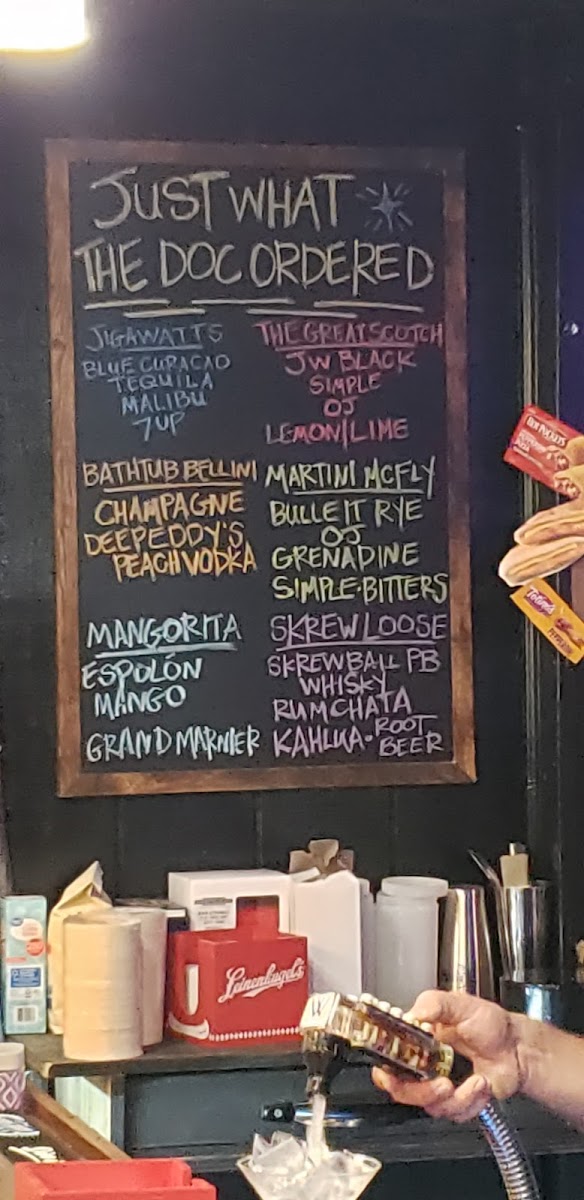 JUST WHAT
THE DOC ORDERED
JIGAWATTS
BLUE CURACAO
TEQUILA
MALIBU
7UP
THE GREAT SCOTCH
JW BLACK
SIMPLE
OJ
LEMON/LIME
BATHTUB BELLINI
CHAMPAGNE
DEEP EDDY'S
PEACH VODKA
MARTINI MCFLY
BULLEIT RYE
OJ
GRENADINE
SIMPLE·BITTERS
MANGORITA
ESPOLÓN
MANGO
GRAND MARNIER
SKREW LOOSE
SKREWBALL PB
WHISKY
RUMCHATA
KAHLUA·ROOT
BEER
HOT POCKETS
Totino's
Leinenkugel's
W